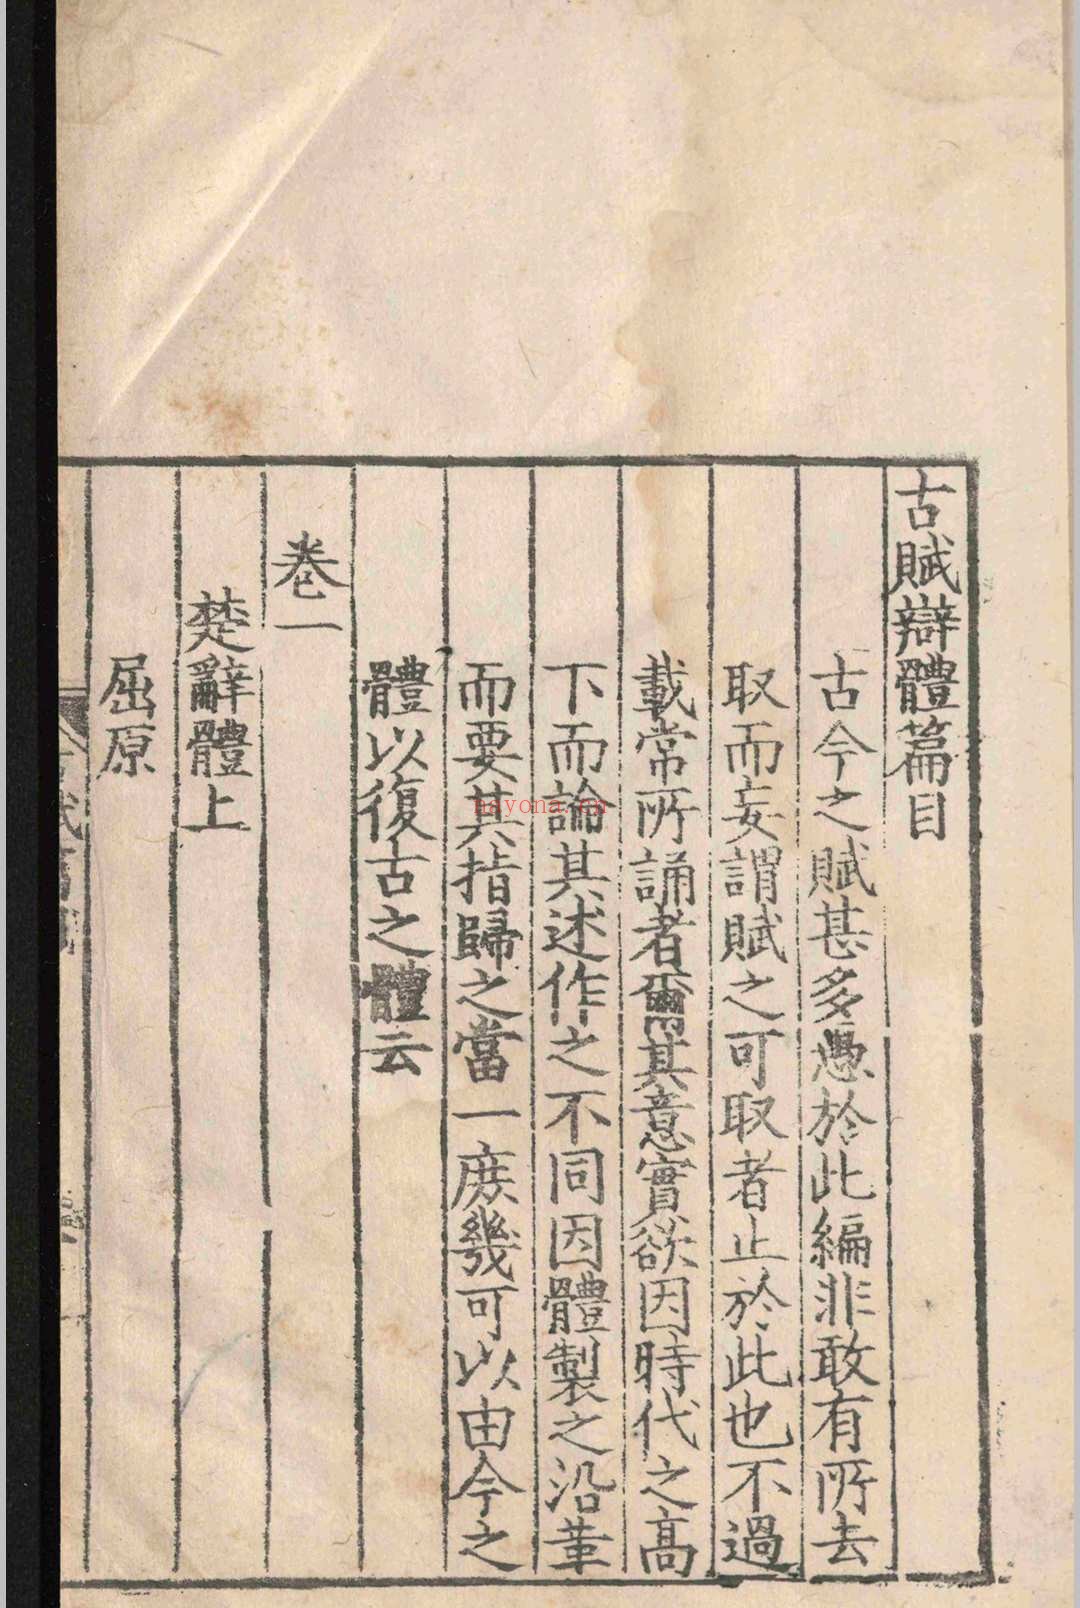 古賦辯體篇目
古今之賦甚多愚於此編非敢有所去
取而妄謂賦之可取者止於此也不過
載常所誦者爾其意實欲因時代之高
下而論其述作之不同因體製之沿革
而要其指歸之當一庶幾可以由今之
體以復古之體云
卷一
楚辭體上
屈原